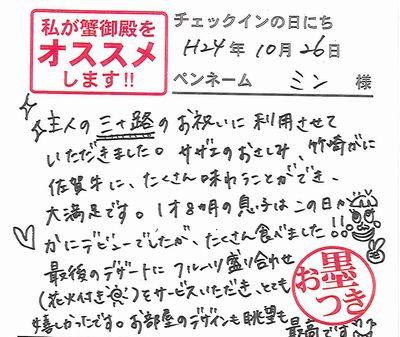 私が蟹御殿を
オススメ
します!!
チェックインの日にち
H24年 10月 26日
ペンネーム ミン 様
主人の三十路のお祝いに利用させて
いただきました。サザエのおさしみ、竹崎がに
佐賀牛に、たくさん味わうことができ、
大満足です。1才8ヵ月の息子はこの日が
かにデビューでしたが、たくさん食べました!!
最後のデザートにフルーツ盛り合わせ
(花火付き)をサービスいただき、とても
嬉しかったです。お部屋のデザインも眺望も
最高です
お墨つき